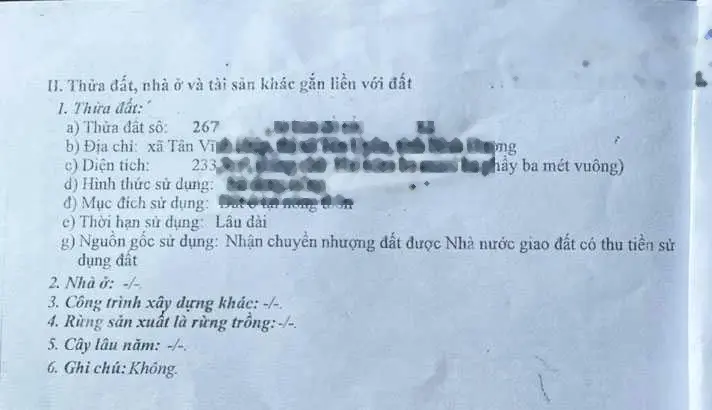 II. Thửa đất, nhà ở và tài sản khác gắn liền với đất
1. Thửa đất:
a) Thửa đất số: 267
b) Địa chỉ: xã Tân
c) Diện tích: 233 phẩy ba mét vuông)
d) Hình thức sử dụng:
đ) Mục đích sử dụng:
e) Thời hạn sử dụng: Lâu dài
g) Nguồn gốc sử dụng: Nhận chuyển nhượng đất được Nhà nước giao đất có thu tiền sử
dụng đất
2. Nhà ở: -/-.
3. Công trình xây dựng khác: -/-.
4. Rừng sản xuất là rừng trồng: -/-.
5. Cây lâu năm: -/-.
6. Ghi chú: Không.